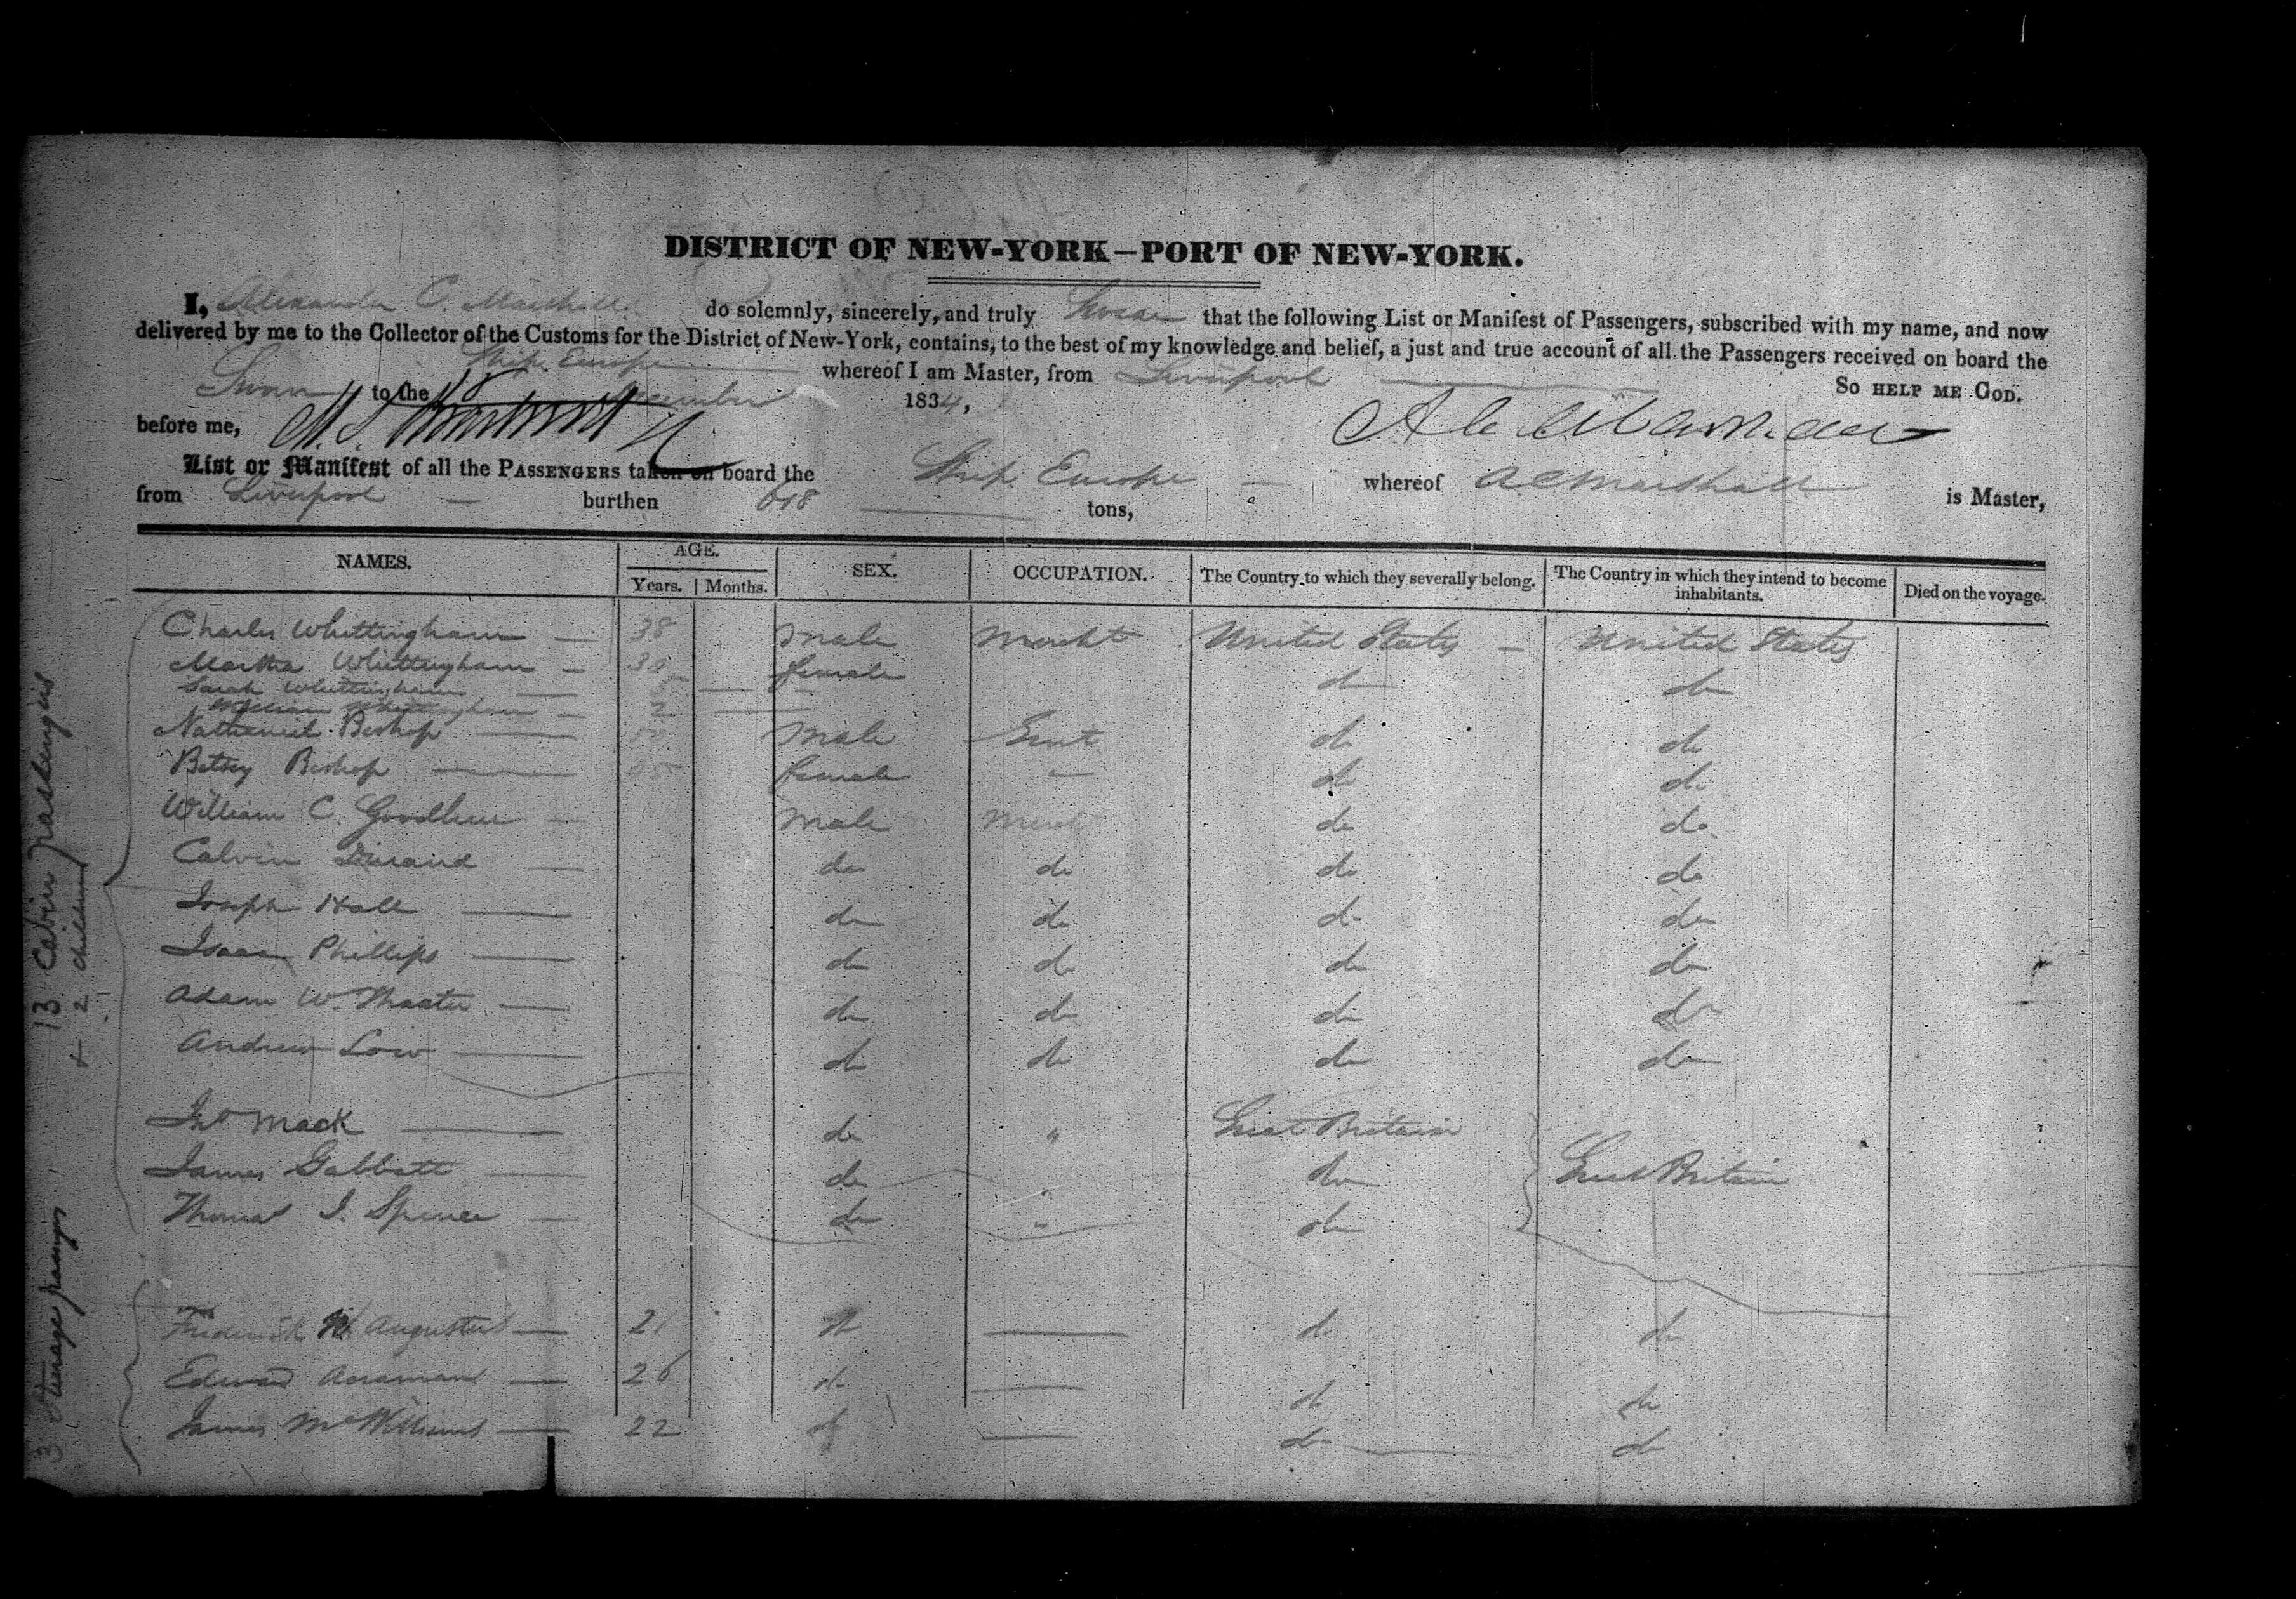 DISTRICT OF NEW-YORK—PORT OF NEW-YORK.
I, Alexander C. Marshall do solemnly, sincerely, and truly Swear that the following List or Manifest of Passengers, subscribed with my name, and now
delivered by me to the Collector of the Customs for the District of New-York, contains, to the best of my knowledge and belief, a just and true account of all the Passengers received on board the
Ship Europe whereof I am Master, from Liverpool
So HELP ME GOD.
Sworn to the 18 December 1834,
before me,
List or Manifest of all the PASSENGERS taken on board the Ship Europe whereof A C Marshall is Master,
from Liverpool burthen 618 tons,
NAMES. AGE. Years. Months. SEX. OCCUPATION. The Country to which they severally belong. The Country in which they intend to become inhabitants. Died on the voyage.
Charles Whittingham — 38 Male Mercht United States — United States
Martha Whittingham — female do do
Sarah Whittingham —
William Whittingham — 2
Nathaniel Bishop — Male Gent do do
Betsey Bishop — female — do do
William C. Goodhue — Male Mercht do do
Calvin Durand — do do do do
Joseph Hall — do do do do
Isaac Phillips — do do do do
Adam W. — do do do do
Andrew Low — do do do do
Jno Mack — do " Great Britain
James Gabbott — do " do Great Britain
Thomas J. Spence — do " do
Frederick Augustus — 21 do — do do
Edward — 26 do — do do
James McWilliams — 22 do — do do
13 Cabin passengers
+ 2 children
3 Steerage passengers